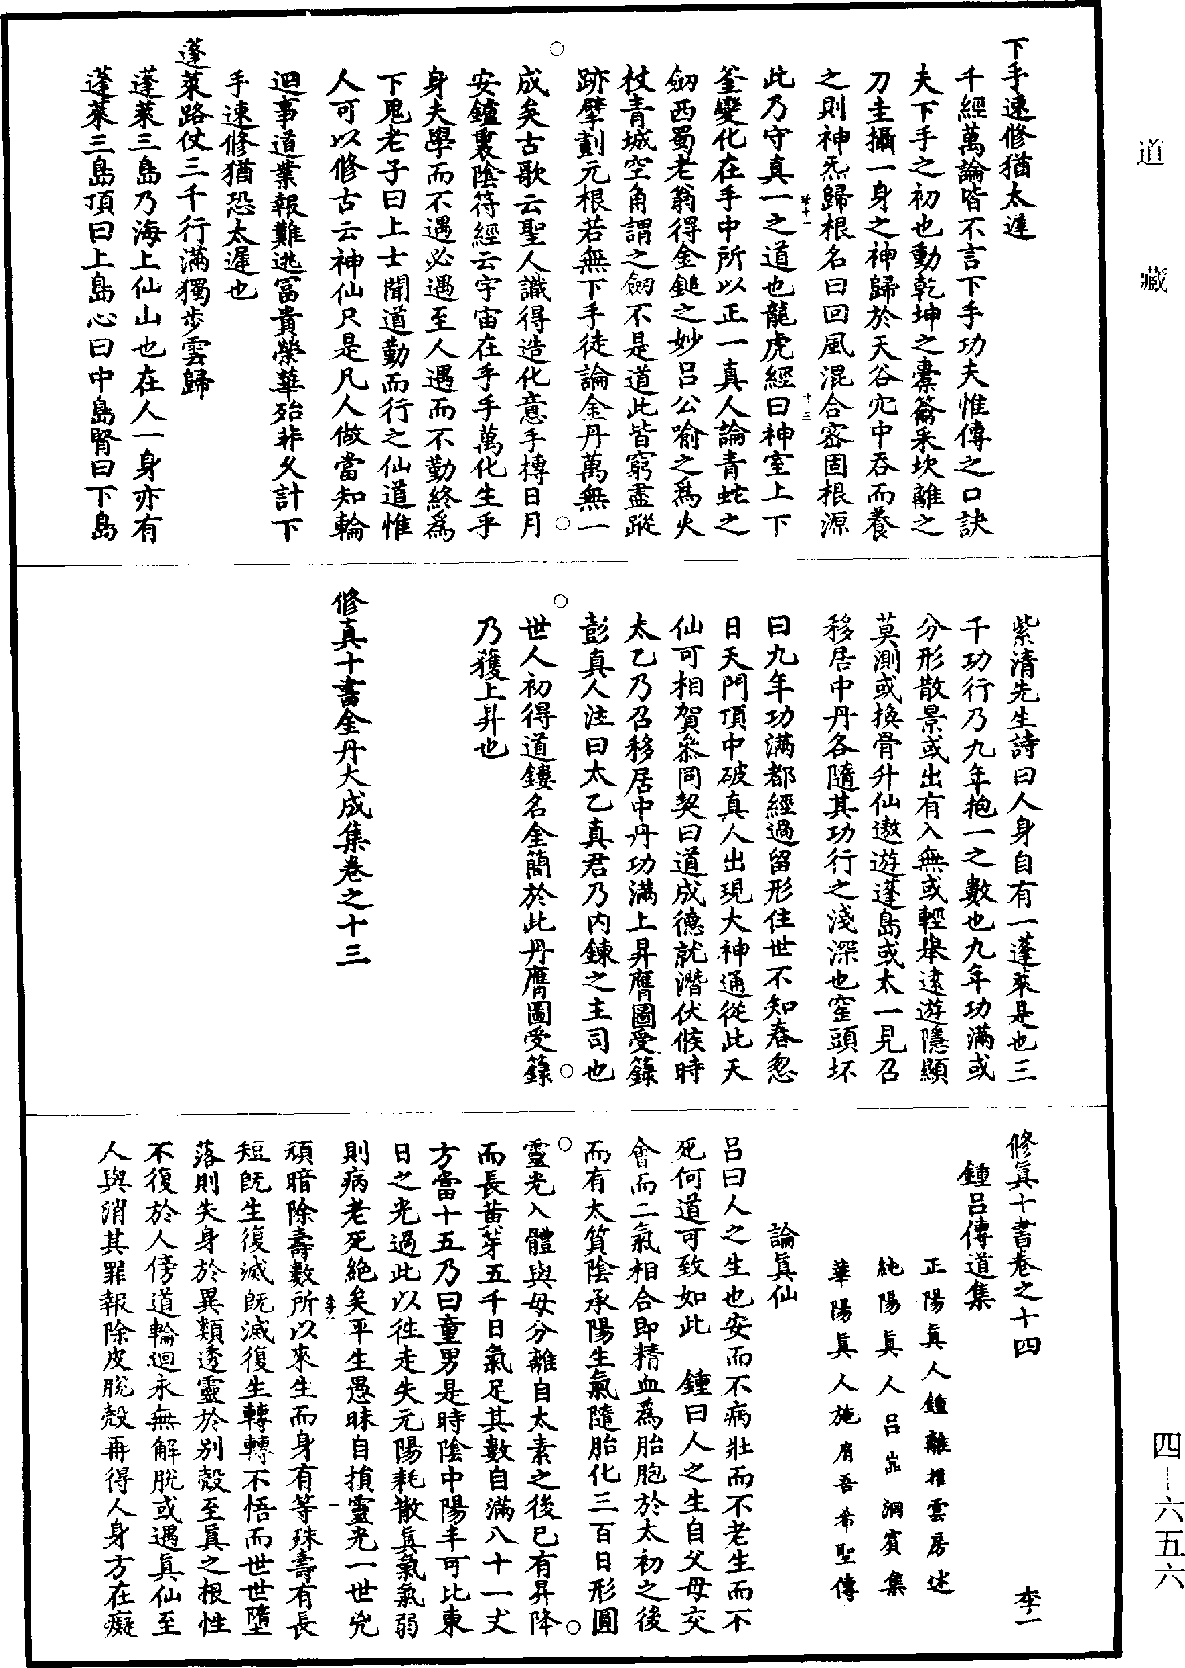 道藏
下手速修猶太遲
千經萬論皆不言下手功夫惟傳之口訣
夫下手之初也動乾坤之橐籥采坎離之
刀圭攝一身之神歸於天谷穴中吞而養
之則神炁歸根名曰回風混合密固根源
此乃守真一之道也龍虎經曰神室上下
釜變化在手中所以正一真人論青蛇之
劒西蜀老翁得金鎚之妙呂公喻之爲火
杖青城空角謂之劒不是道此皆窮盡蹤
跡擘劃元根若無下手徒論金丹萬無一
成矣古歌云聖人識得造化意手搏日月
安鑪裏陰符經云宇宙在乎手萬化生乎
身夫學而不遇必遇至人遇而不勤終爲
下鬼老子曰上士聞道勤而行之仙道惟
人可以修古云神仙只是凡人做當知輪
迴事道業報難逃富貴榮華殆非久計下
手速修猶恐太遲也
蓬萊路仗三千行滿獨步雲歸
蓬萊三島乃海上仙山也在人一身亦有
蓬萊三島頂曰上島心曰中島腎曰下島
紫清先生詩曰人身自有一蓬萊是也三
千功行乃九年抱一之數也九年功滿或
分形散景或出有入無或輕舉遠遊隱顯
莫測或換骨升仙遨遊蓬島或太一見召
移居中丹各隨其功行之淺深也窒頭坯
曰九年功滿都經過留形住世不知春忽
日天門頂中破真人出現大神通從此天
仙可相賀叅同契曰道成德就潛伏候時
太乙乃召移居中丹功滿上昇膺圖受籙
彭真人注曰太乙真君乃內鍊之主司也
世人初得道鏤名金簡於此丹膺圖受籙
乃獲上昇也
修真十書金丹大成集卷之十三
修眞十書卷之十四 李一
鍾呂傳道集
正陽眞人鍾離權雲房述
純陽眞人呂嵒洞賓集
華陽眞人施肩吾希聖傳
論眞仙
呂曰人之生也安而不病壯而不老生而不
死何道可致如此 鍾曰人之生自父母交
會而二氣相合即精血爲胎胞於太初之後
而有太質陰承陽生氣隨胎化三百日形圓
靈光入體與母分離自太素之後已有昇降
而長黃芽五千日氣足其數自滿八十一丈
方當十五乃曰童男是時陰中陽半可比東
日之光過此以往走失元陽耗散眞氣氣弱
則病老死絕矣平生愚昧自損靈光一世兇
頑暗除壽數所以來生而身有等殊壽有長
短旣生復滅旣滅復生轉轉不悟而世世墮
落則失身於異類透靈於別殼至眞之根性
不復於人傍道輪迴永無解脫或遇眞仙至
人與消其罪報除皮脫殼再得人身方在癡
四-六五六